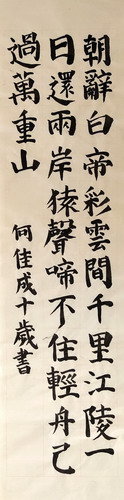 朝辭白帝彩雲間千里江陵一
日還兩岸猿聲啼不住輕舟已
過萬重山
何佳成十歲書